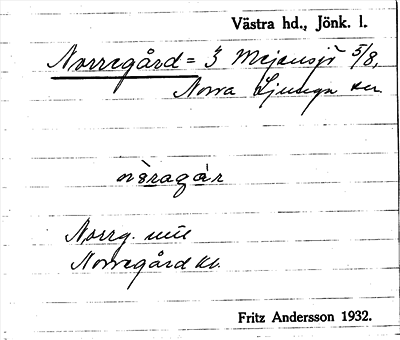 Västra hd., Jönk. l.
Norregård = 3 Mejensjö 5/8,
Norra Ljunga sn
nòragàr
Norrg.
Norregård kb.
Fritz Andersson 1932.